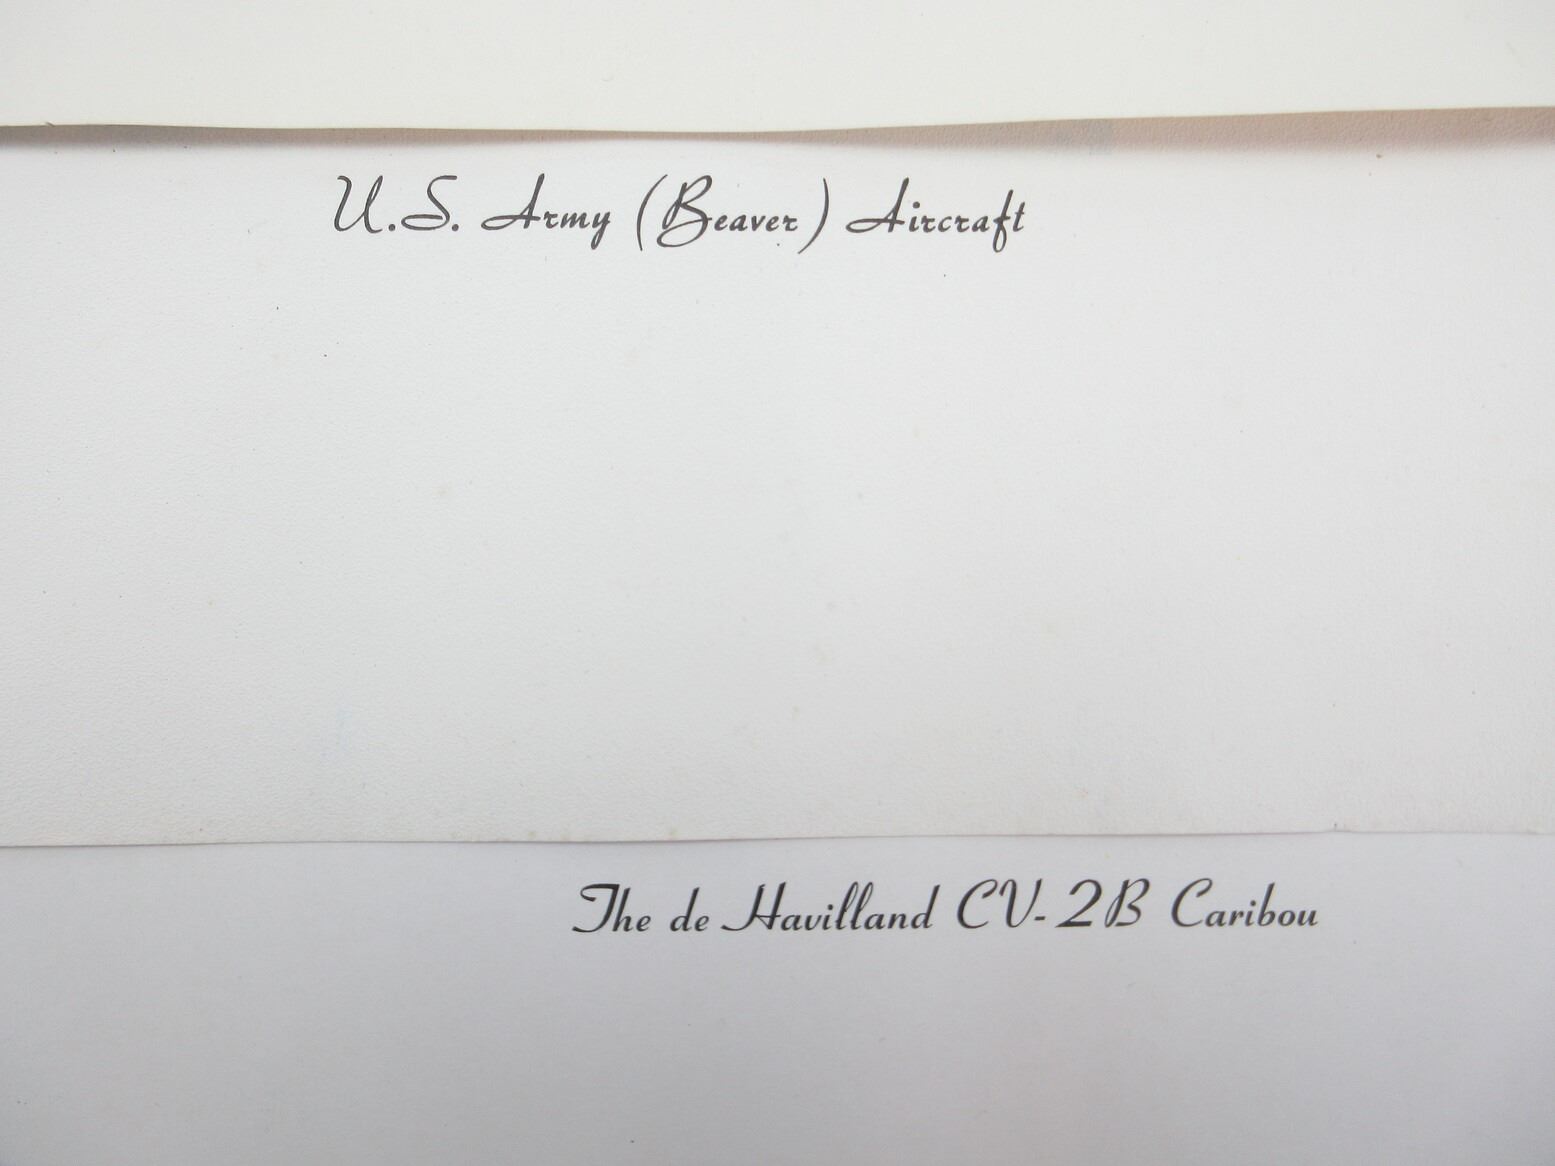 U.S. Army (Beaver) Aircraft
The de Havilland CV-2B Caribou